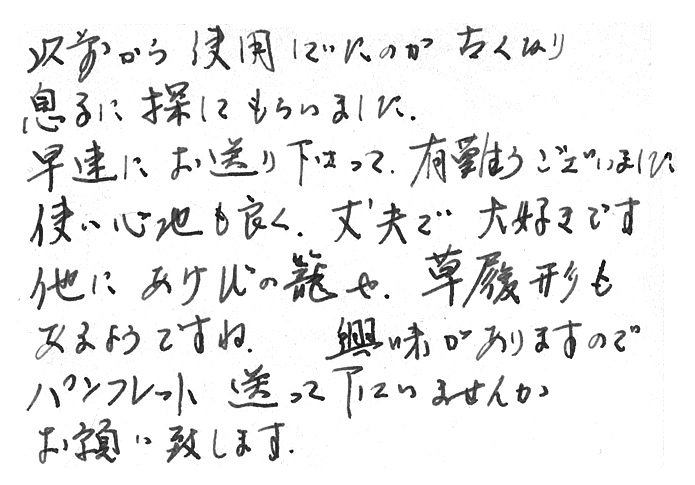 以前から使用していたのが古くなり
息子に探してもらいました。
早速にお送り下さって、有難うございました
使い心地も良く、丈夫で大好きです
他にあけびの籠や、草履形も
あるようですね。 興味がありますので
パンフレット送って下さいませんか
お願い致します。